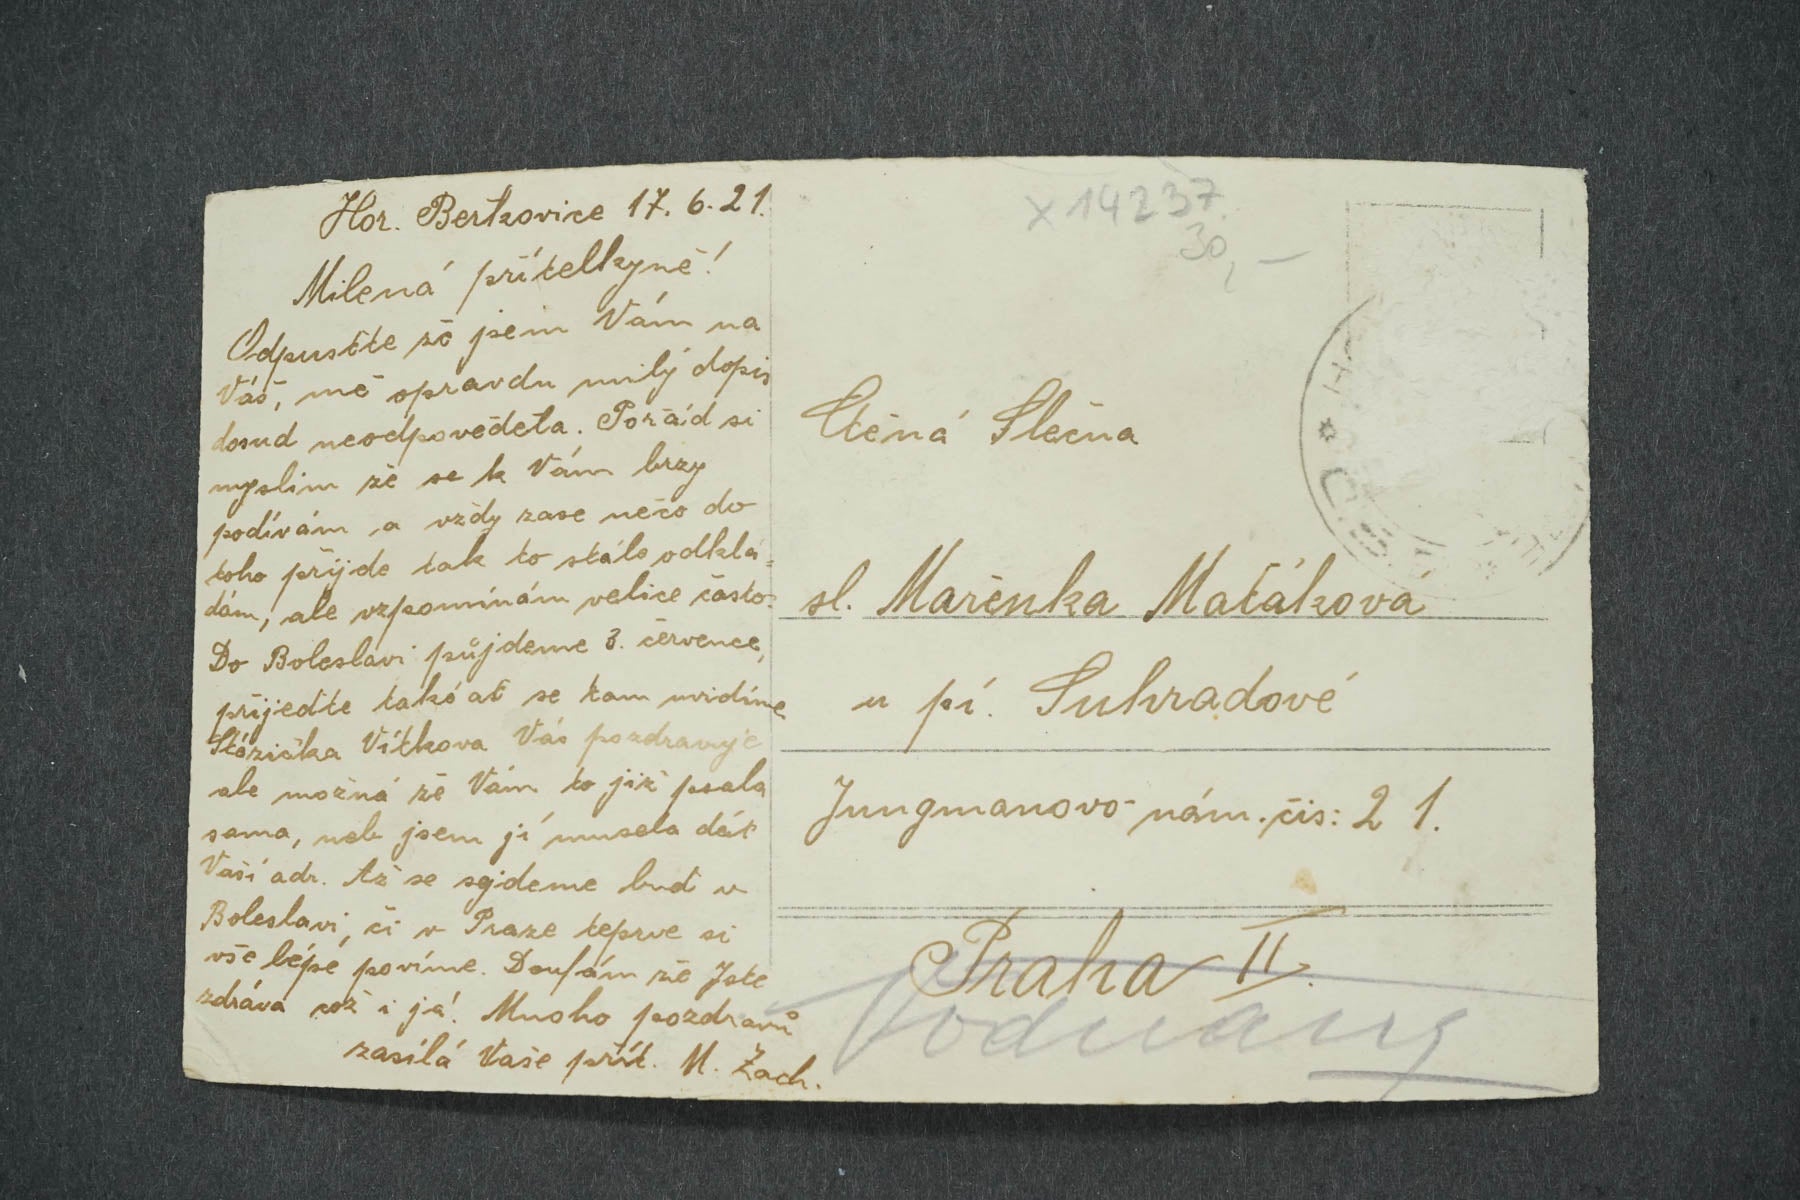 Hor. Beřkovice 17. 6. 21.
Milená přítelkyně!
Odpusťte že jsem Vám na
Váš, mě opravdu milý dopis
dosud neodpověděla. Pořád si
myslim žě se k Vám brzy
podívám a vždy zase něco do
toho příjde tak to stále odklá-
dám, ale vzpomínám velice často.
Do Boleslavi půjdeme 3. července,
přijeďte také ať se tam uvidíme
Stázička Vítkova Vás pozdravuje
ale možná žě Vám to již psala
sama, neb jsem jí musela dát
Vaší adr. Až se sejdeme buď v
Boleslavi, či v Praze teprve si
vše lépe povíme. Doufám žě Jste
zdráva což i já. Mnoho pozdravů
zasílá Vaše přít. M. Zach.
X 14237
30,-
Ctěná Slečna
sl. Mařenka Maťákova
u pí. Suhradové
Jungmanovo nám. čís: 21.
Praha II.
Vodňany